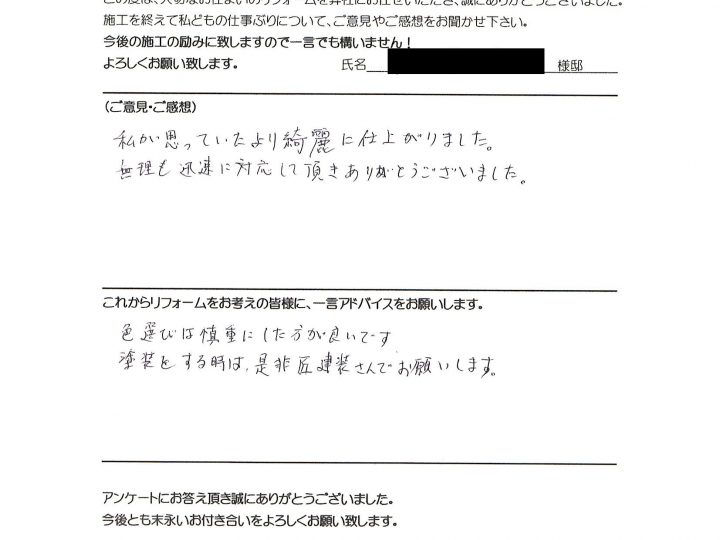 この度は、大切なお住まいのリフォームを弊社にお任せいただき、誠にありがとうございました。
施工を終えて私どもの仕事ぶりについて、ご意見やご感想をお聞かせ下さい。
今後の施工の励みに致しますので一言でも構いません！
よろしくお願い致します。 氏名 様邸
（ご意見・ご感想）
私が思っていたより綺麗に仕上がりました。
無理も迅速に対応して頂きありがとうございました。
これからリフォームをお考えの皆様に、一言アドバイスをお願いします。
色選びは慎重にした方が良いです
塗装をする時は、是非匠建装さんでお願いします。
アンケートにお答え頂き誠にありがとうございました。
今後とも末永いお付き合いをよろしくお願い致します。